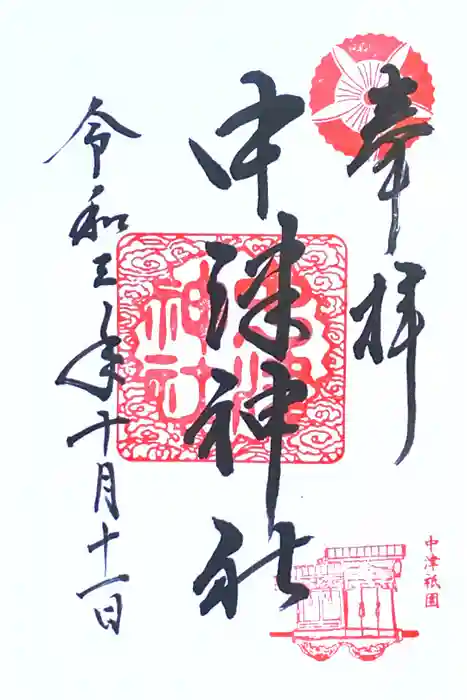 奉拝
中津神社
令和三年十月十一日
中津神社
中津祇園